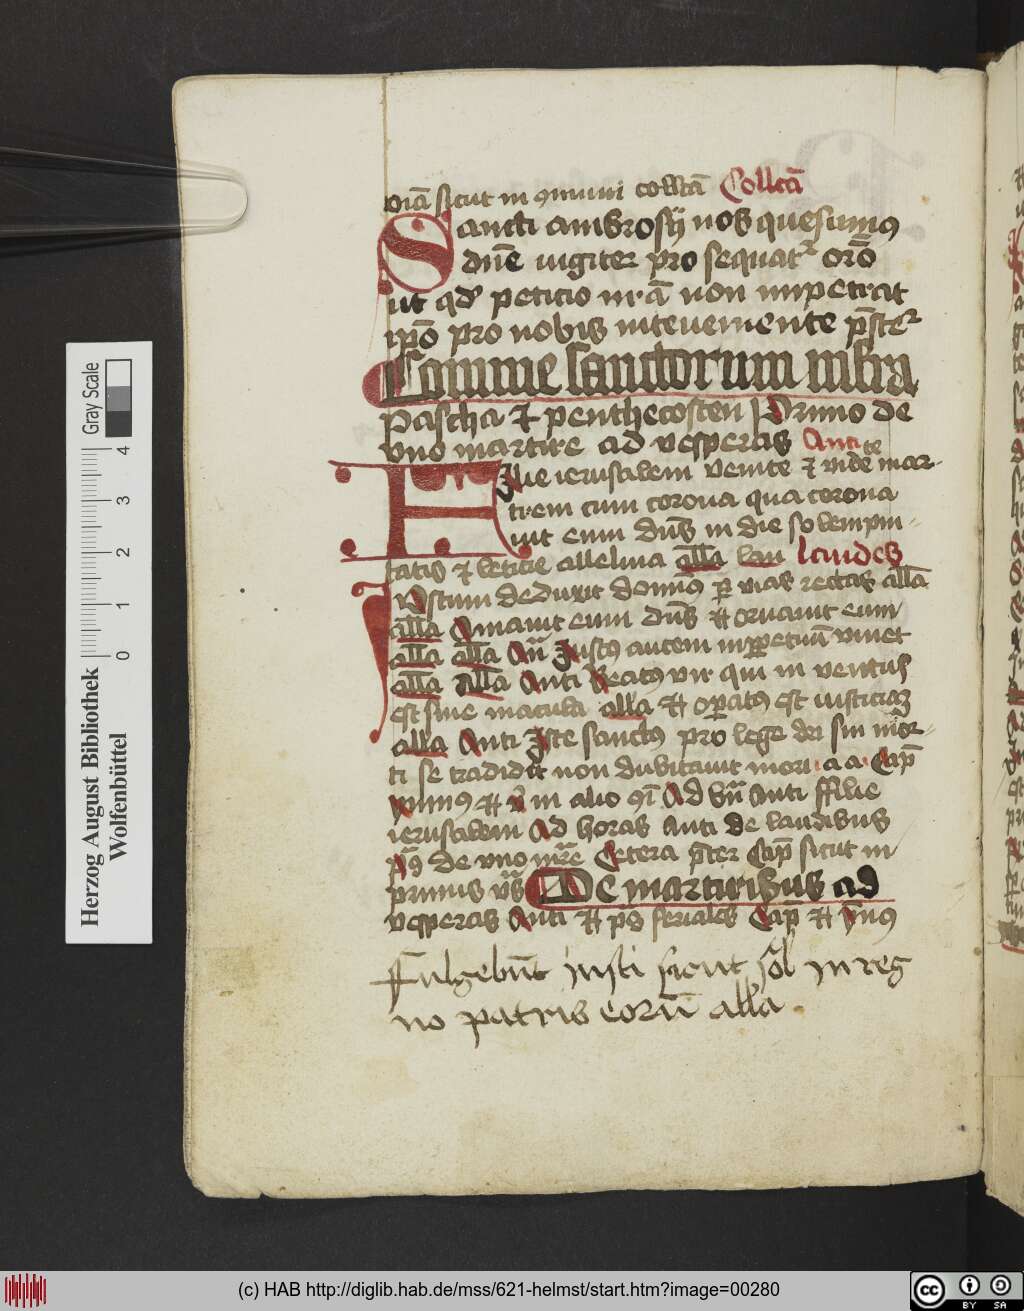 oiā sicut in 9muni co Collcā
Sancti ambrosij nos quesum9
dnē iugiter pro sequat² orō
ut qd peticio nrā non impetrat
ipō pro nobis inteueniente pste²
Comune sanctorum infra
Pascha et penthecosten Primo de
vno martire ad vesperas Anti
Filie ierusalem venite et videte mar-
tirem cum corona qua corona
uit eum dns in die solempni-
tatis et leticie alleluia alla lau laudes
Iustum deduxit domin9 p vias rectas allā
alla Amauit eum dns et ornauit eum
alla alla An Iust9 autem inppetuū viuet
alla alla Anti Beat9 vir qui in vent9
est sine macula alla et opat9 est iusticiaz
alla Anti Iste sanct9 pro lege dei sui mor-
ti se tradidit non dubitauit mori a a Cap
ymn9 et v in alio Ad bn Anti ffilie
ierusalem Ad horas Anti de laudibus
ps de vno mre Cetera pter Cap sicut in
primis vs De martiribus ad
vesperas Anti et ps feriales Cap et ymn9
Fulgebūt iusti sicut sol in reg
no patris eorū alla.
Herzog August Bibliothek
Wolfenbüttel
0 1 2 3 4
Gray Scale
(c) HAB http://diglib.hab.de/mss/621-helmst/start.htm?image=00280
cc BY SA